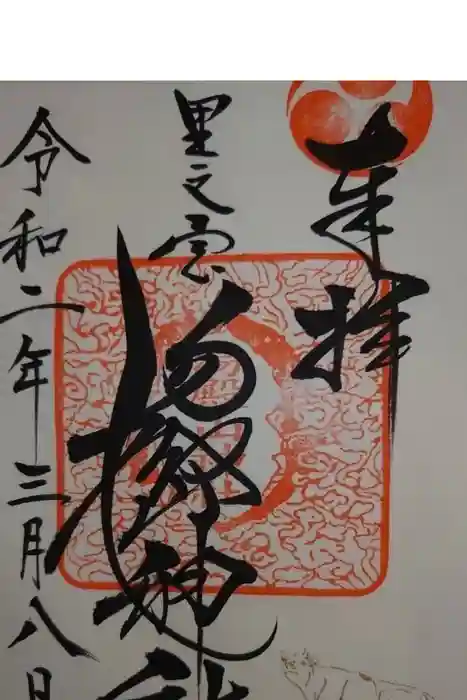 奉拝
里之宮
湯殿山神社
令和二年三月八日